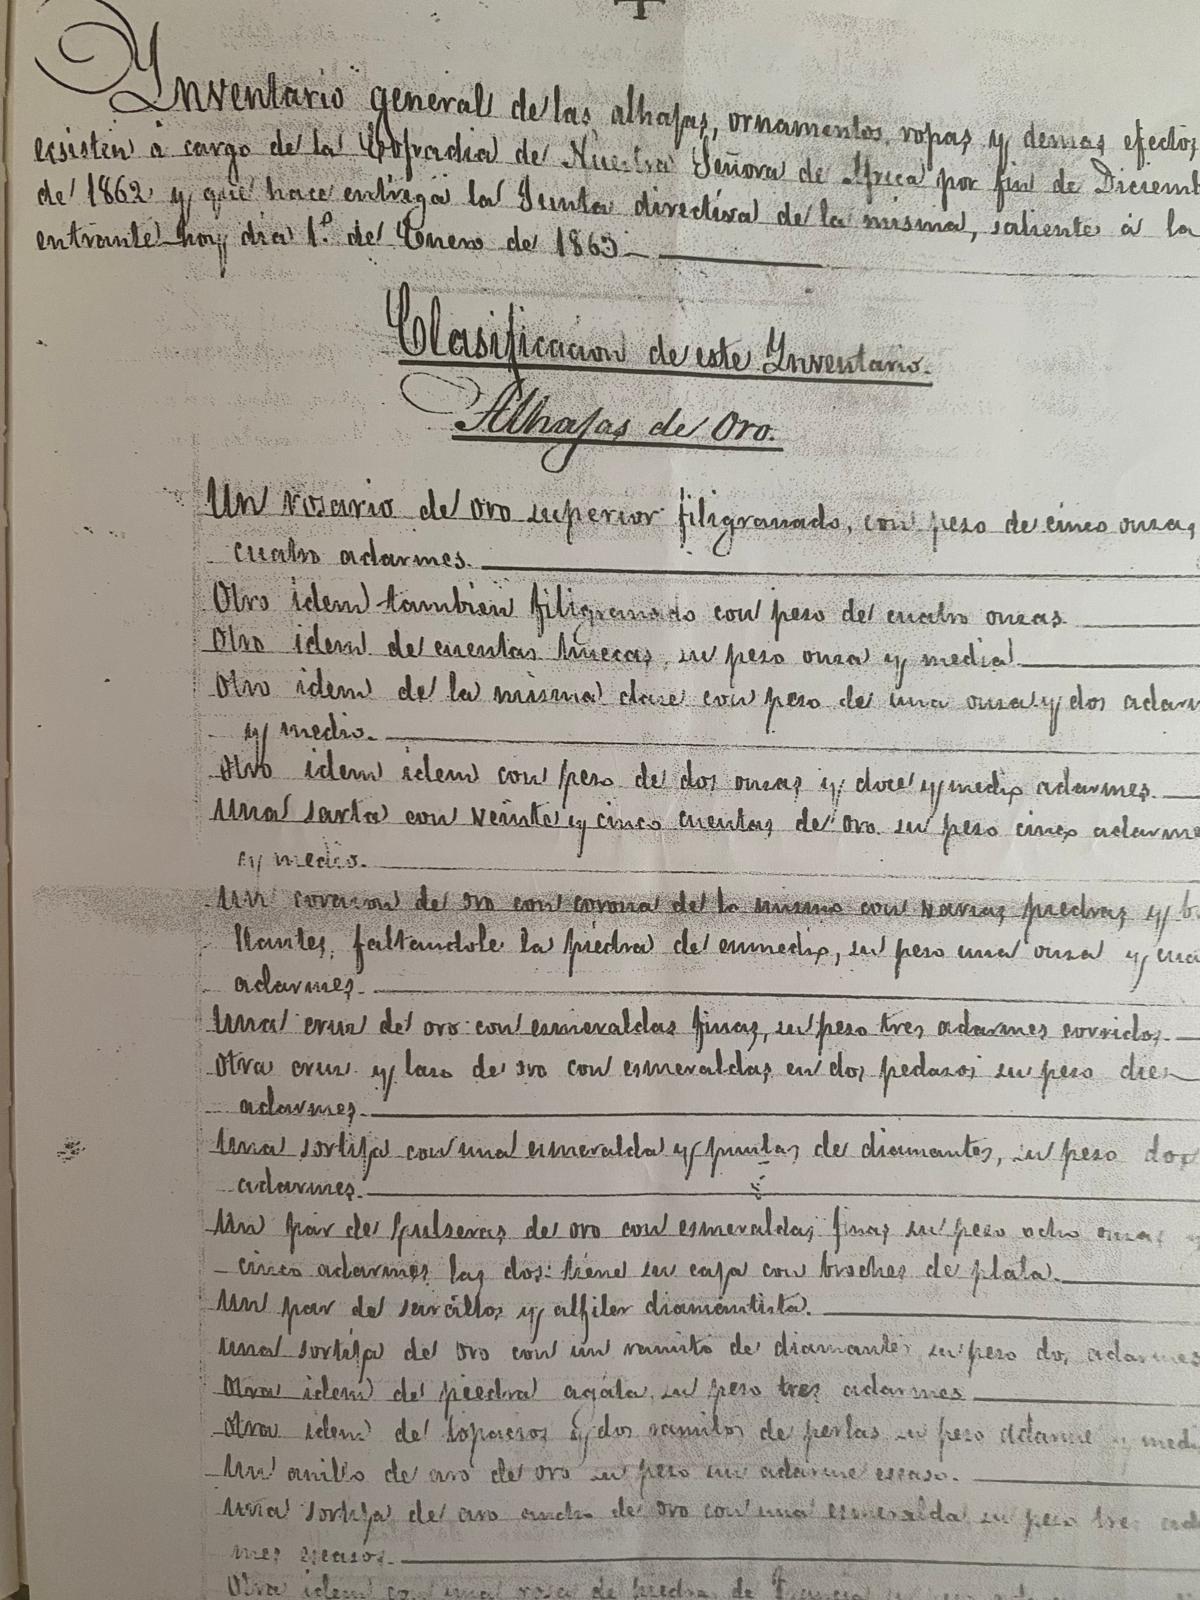 Ynventario general de las alhajas, ornamentos, ropas y demas efectos
ecsisten á cargo de la Cofradia de Nuestra Señora de Africa por fin de Diciemb
de 1862 y que hace entrega la Junta directiva de la misma, saliente á la
entrante hoy dia 1º de Enero de 1863
Clasificacion de este Ynventario.
Alhajas de Oro.
Un rosario de oro superior filigranado, con peso de cinco onzas,
cuatro adarmes.
Otro idem tambien filigranado con peso de cuatro onzas
Otro idem de cuentas huecas, su peso onza y media
Otro idem de la misma clase con peso de una onza y dos adarm
y medio.
Otro idem idem con peso de dos onzas y doce y medio adarmes.
Una sarta con veinte y cinco cuentas de oro su peso cinco adarme
y medio.
Un corazon de oro con corona de lo mismo con varias piedras y b
llantes, faltandole la piedra de enmedio, su peso una onza y cua
adarmes.
Una cruz de oro con esmeraldas finas, su peso tres adarmes corridos.
Otra cruz y lazo de oro con esmeraldas en dos pedazos su peso diez
adarmes.
Una sortija con una esmeralda y puntas de diamantes, su peso dos
adarmes.
Un par de pulseras de oro con esmeraldas finas su peso ocho onzas y
cinco adarmes las dos: tiene su caja con broches de plata.
Un par de sarcillos y alfiler diamantista.
Una sortija de oro con un ramito de diamantes su peso dos adarmes
Otra idem de piedra agata, su peso tres adarmes
Otra idem de topacios y dos ramitos de perlas su peso adarme y medi
Un anillo de aro de oro su peso un adarme escaso.
Una sortija de aro ancho de oro con una esmeralda su peso tres ad
mes escasos.
Otra idem con una rosa de piedra de Francia su peso